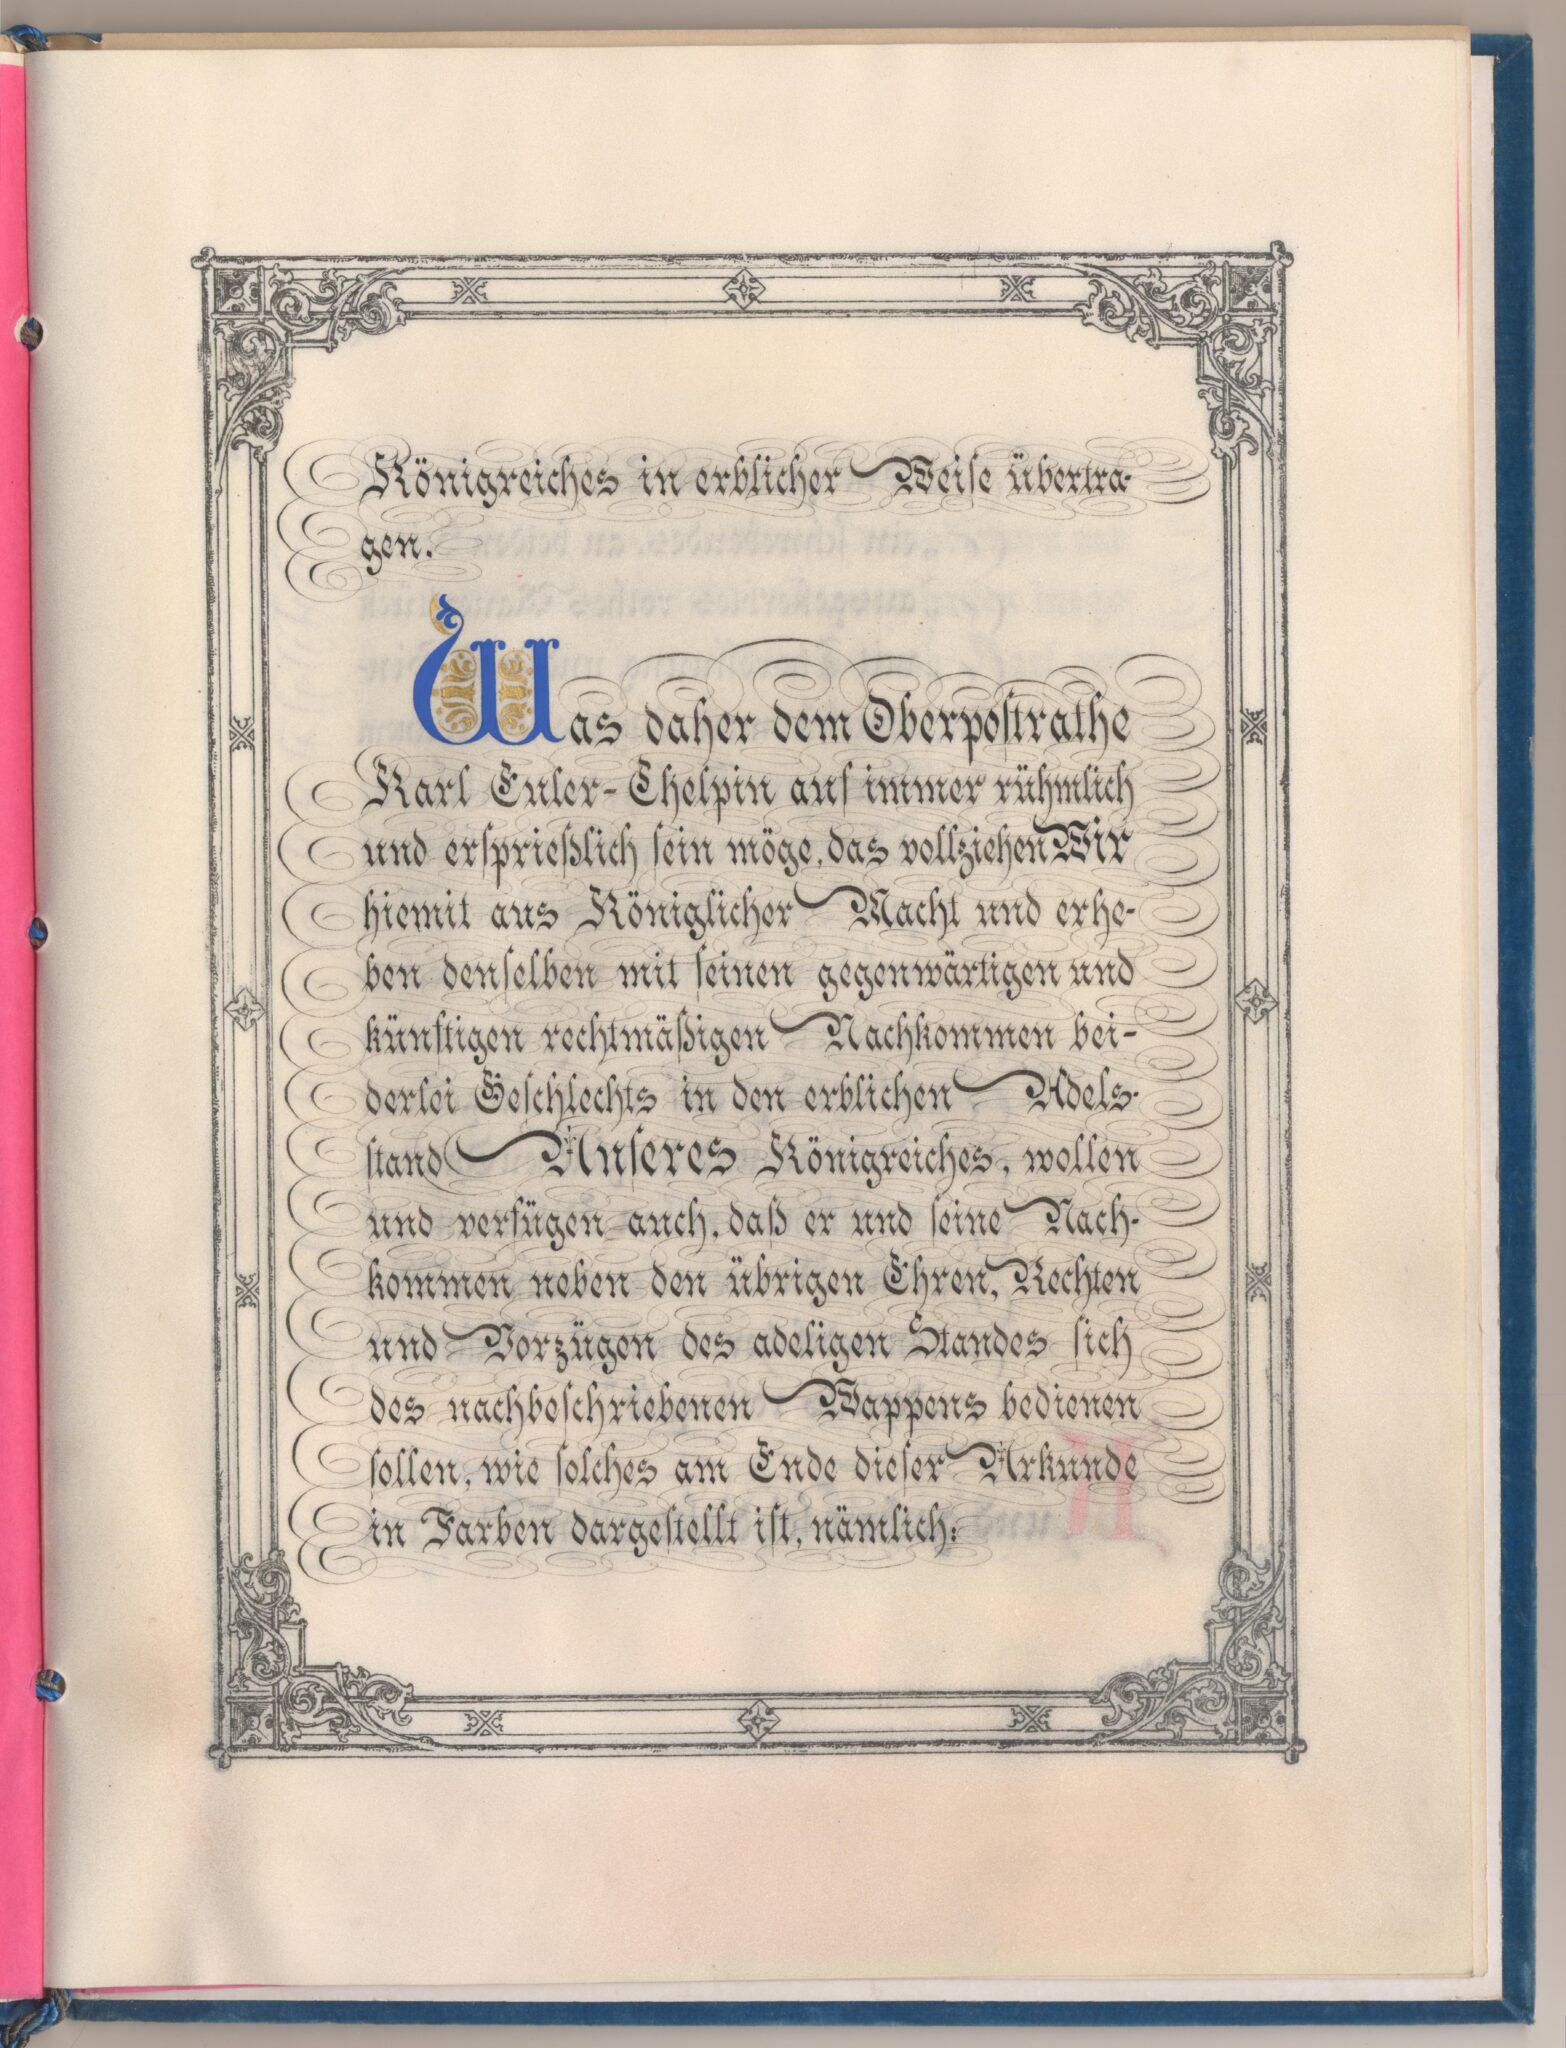 Königreiches in erblicher Weise übertra-
gen.
Was daher dem Oberpostrathe
Karl Euler-Chelpin auf immer rühmlich
und ersprießlich sein möge, das vollziehen Wir
hiemit aus Königlicher Macht und erhe-
ben denselben mit seinen gegenwärtigen und
künftigen rechtmäßigen Nachkommen bei-
derlei Geschlechts in den erblichen Adels-
stand Unseres Königreiches, wollen
und verfügen auch, daß er und seine Nach-
kommen neben den übrigen Ehren, Rechten
und Vorzügen des adeligen Standes sich
des nachbeschriebenen Wappens bedienen
sollen, wie solches am Ende dieser Urkunde
in Farben dargestellt ist, nämlich: